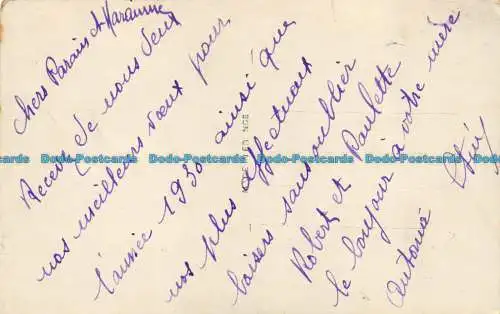 Chers Parains et Marainne
Recevez de nous deux
nos meilleurs vœux pour
l'année 1930 ainsi que
nos plus affectueux
baisers sans oublier
Robert et Paulette
le bonjour à votre mère
Antonia
Dodo-Postcards Dodo-Postcards Dodo-Postcards Dodo-Postcards Dodo-Postcards Dodo-Postcards Dodo-Postcards